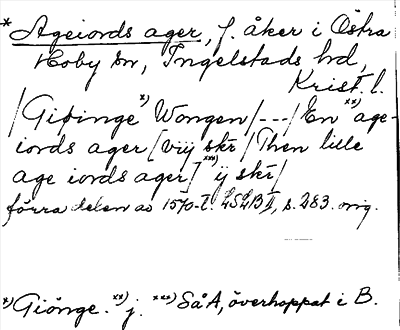 * Ageiords ager, f. åker i Östra
Hoby sn, Ingelstads hd,
Krist. l.
/Giöinge *) Wongen/---/En **) age-
iords ager [viij skr/Then lille
age iords ager] ***) ij skr/
förra delen av 1570-t. LSLB II, s. 283. orig.
*) Giönge. **) j. ***) Så A, överhoppat i B.